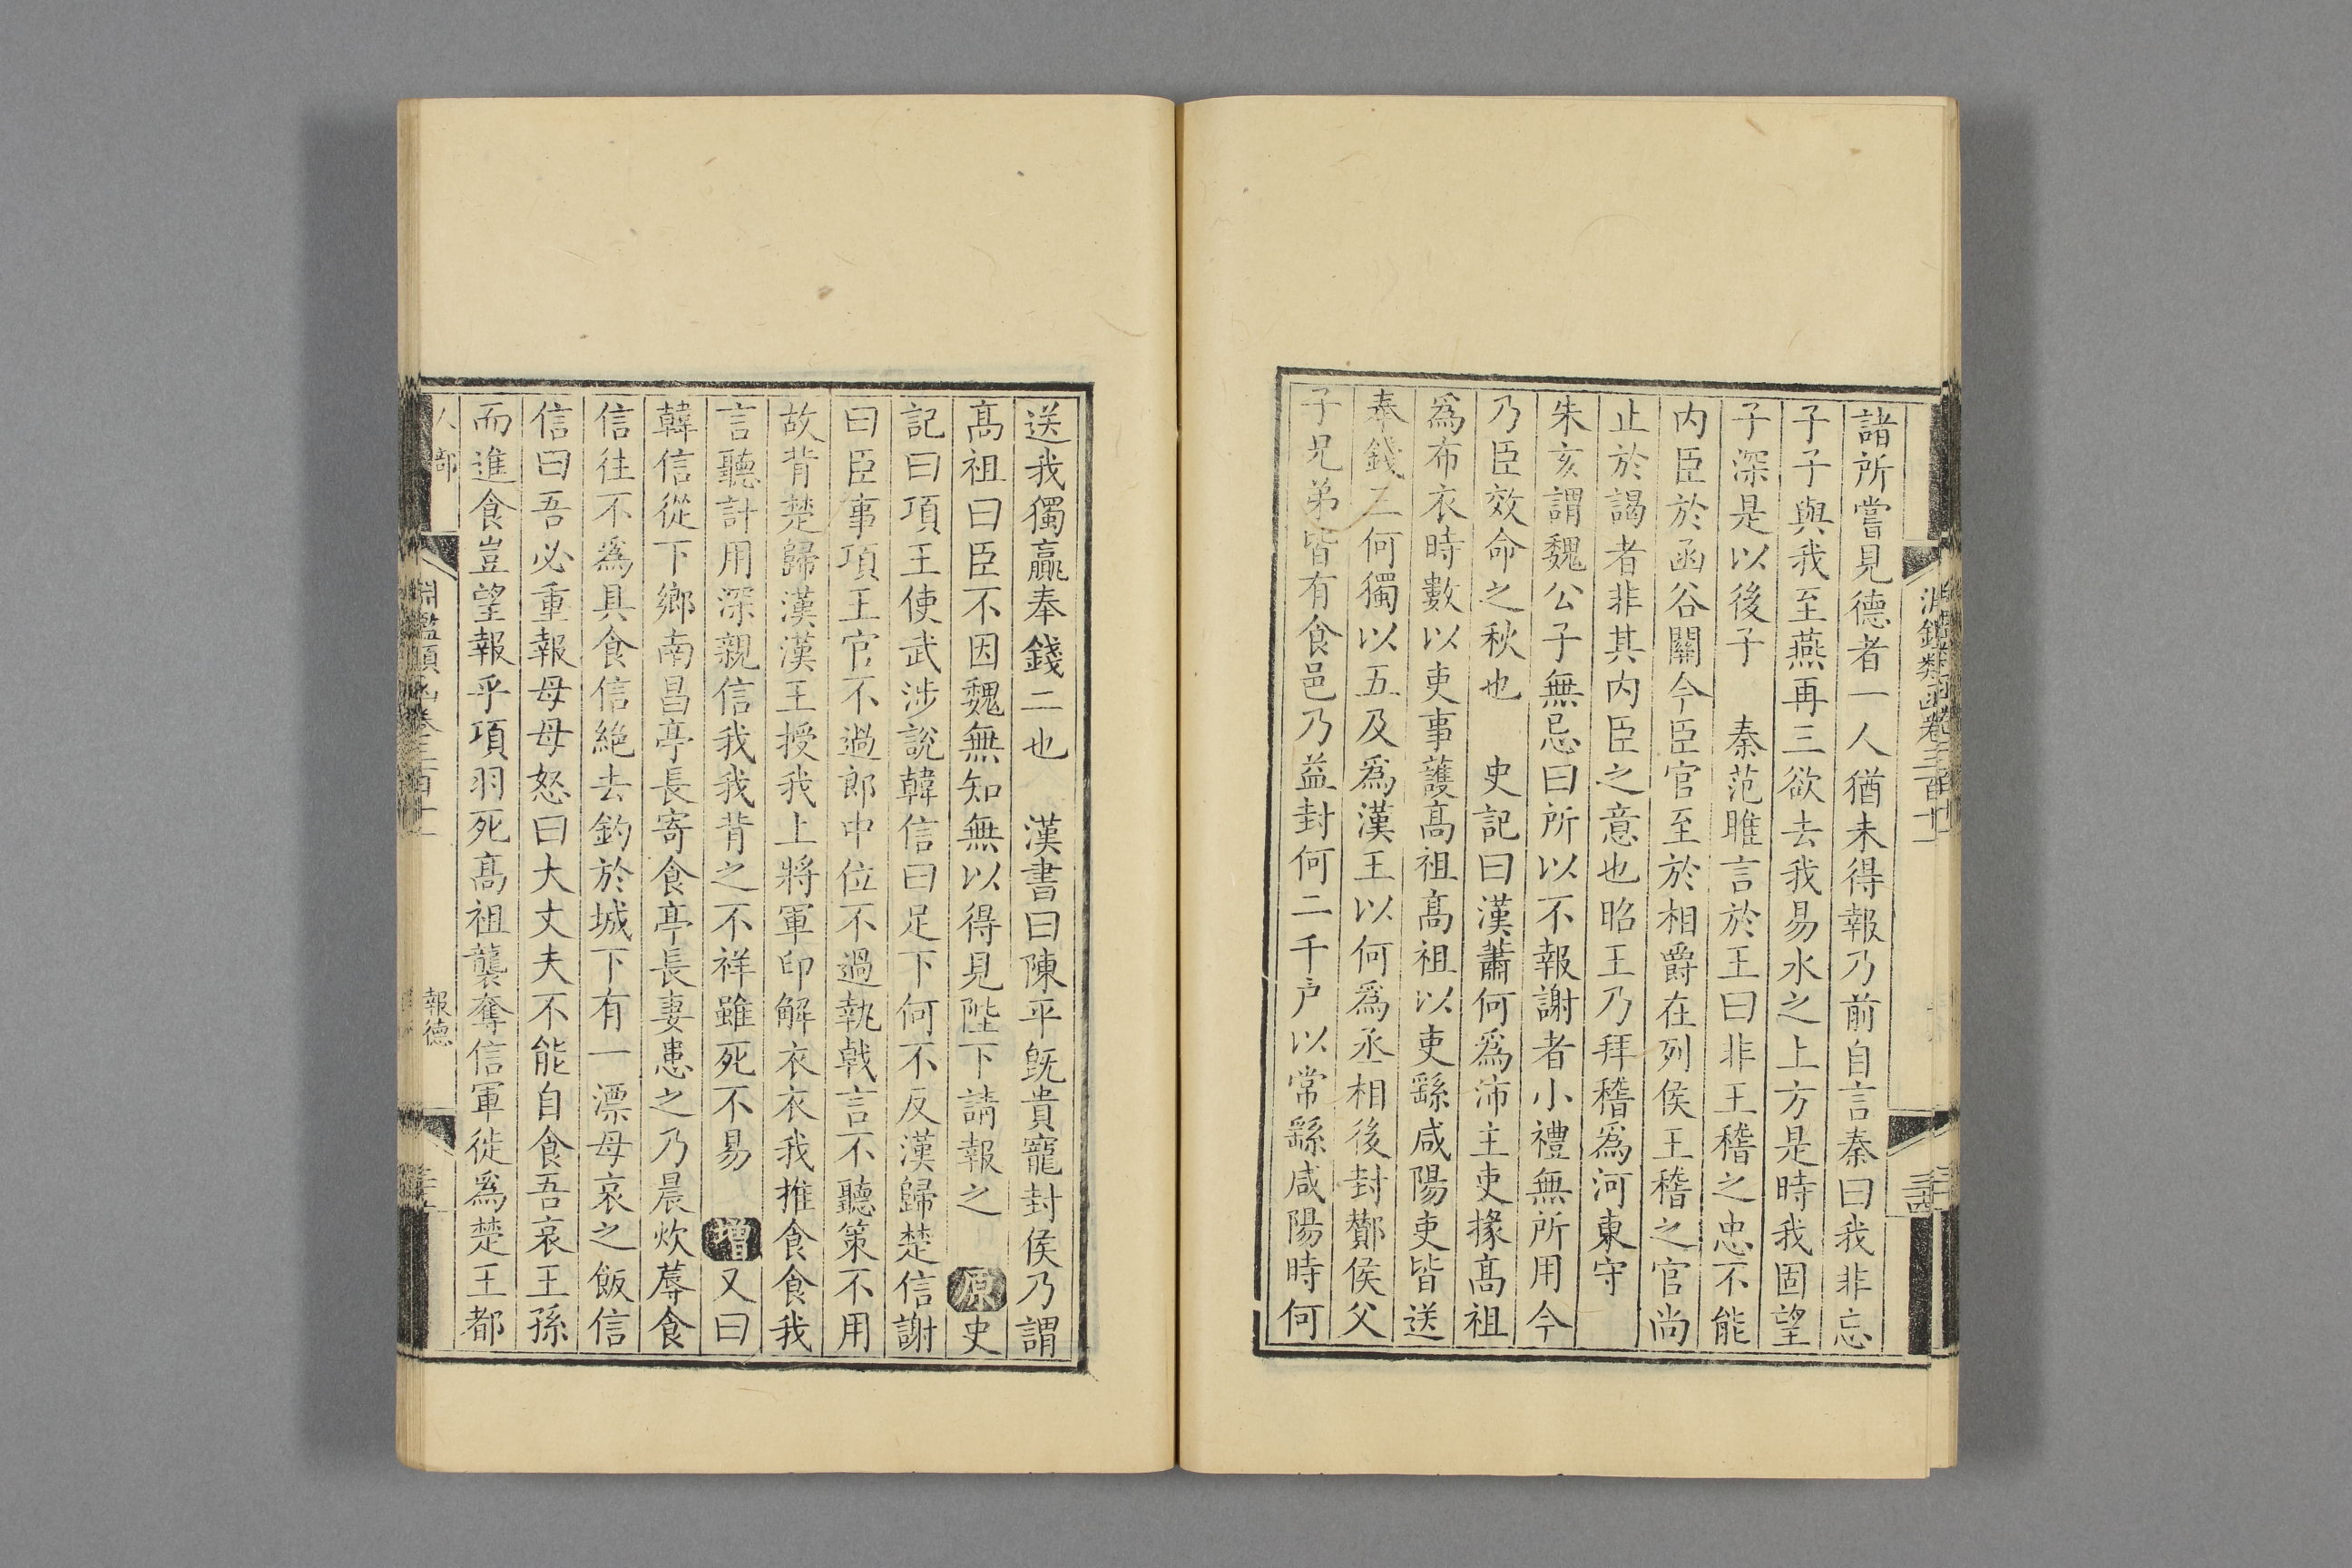 諸所嘗見德者一人猶未得報乃前自言秦曰我非忘
子子與我至燕再三欲去我易水之上方是時我固望
子深是以後子　秦范雎言於王曰非王稽之忠不能
内臣於函谷關今臣官至於相爵在列侯王稽之官尚
止於謁者非其内臣之意也昭王乃拜稽爲河東守
朱亥謂魏公子無忌曰所以不報謝者小禮無所用今
乃臣效命之秋也　史記曰漢蕭何爲沛主吏掾髙祖
爲布衣時數以吏事護髙祖髙祖以吏繇咸陽吏皆送
奉錢三何獨以五及爲漢王以何爲丞相後封酇侯父
子兄弟皆有食邑乃益封何二千户以常繇咸陽時何
送我獨贏奉錢二也　漢書曰陳平旣貴寵封侯乃謂
髙祖曰臣不因魏無知無以得見陛下請報之　原史
記曰項王使武涉說韓信曰足下何不反漢歸楚信謝
曰臣事項王官不過郎中位不過執戟言不聽策不用
故背楚歸漢漢王授我上將軍印解衣衣我推食食我
言聽計用深親信我我背之不祥雖死不易　增又曰
韓信從下鄉南昌亭長寄食亭長妻患之乃晨炊蓐食
信往不爲具食信絶去釣於城下有一漂母哀之飯信
信曰吾必重報母母怒曰大丈夫不能自食吾哀王孫
而進食豈望報乎項羽死髙祖襲奪信軍徙爲楚王都
人部
淵鑑類函卷三百十一
報德